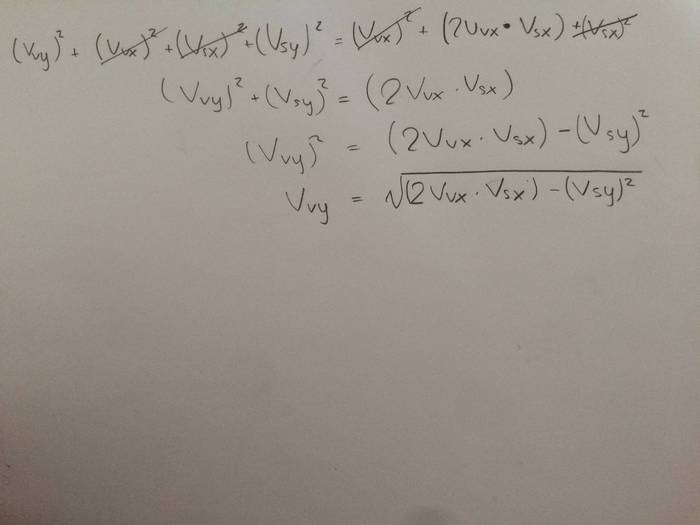 (Vvy)² + (Vvx)² + (Vsx)² + (Vsy)² = (Vvx)² + (2Vvx • Vsx) + (Vsx)²
(Vvy)² + (Vsy)² = (2Vvx · Vsx)
(Vvy)² = (2Vvx · Vsx) - (Vsy)²
Vvy = √(2Vvx · Vsx) - (Vsy)²